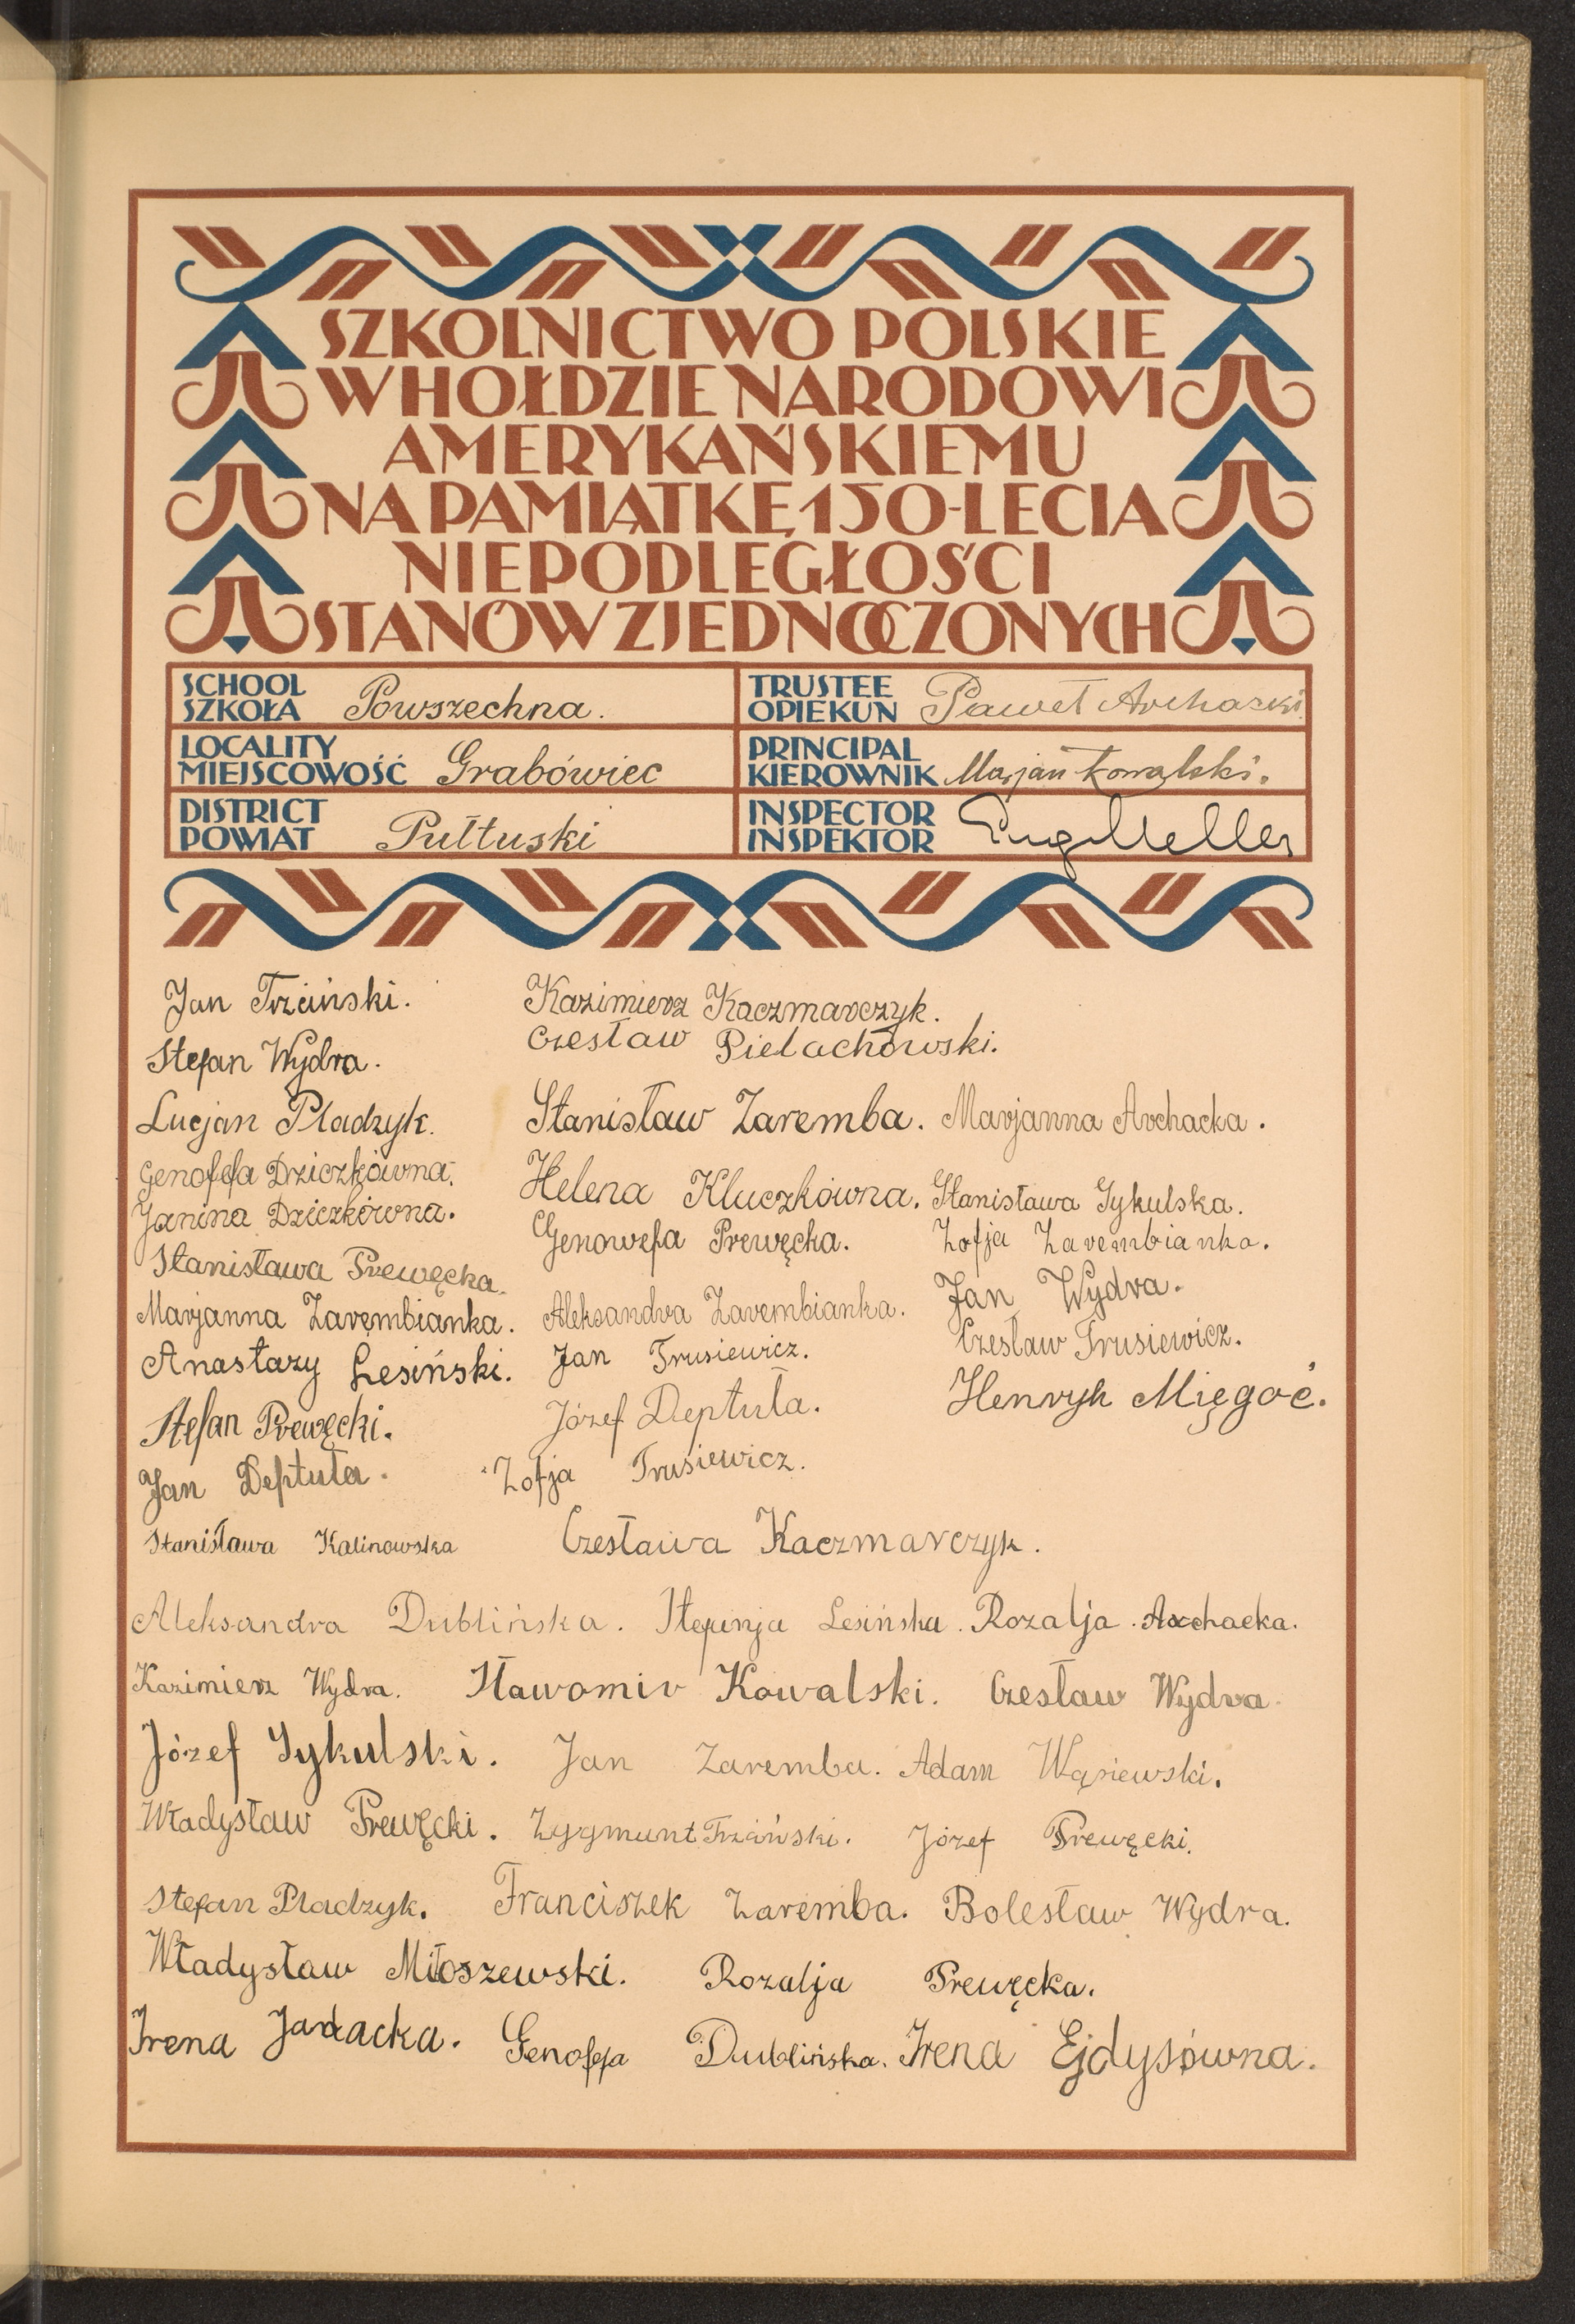 SZKOLNICTWO POLSKIE
W HOŁDZIE NARODOWI
AMERYKAŃSKIEMU
NA PAMIĄTKĘ 150-LECIA
NIEPODLEGŁOŚCI
STANÓW ZJEDNOCZONYCH
SCHOOL
SZKOŁA Powszechna.
TRUSTEE
OPIEKUN Paweł Archacki
LOCALITY
MIEJSCOWOŚĆ Grabówiec
PRINCIPAL
KIEROWNIK Marjan Kowalski.
DISTRICT
POWIAT Pułtuski
INSPECTOR
INSPEKTOR
Jan Trzciński. Kazimierz Kaczmarczyk.
Stefan Wydra. Czesław Pielachowski.
Lucjan Pładzyk. Stanisław Zaremba. Marjanna Archacka.
Genofefa Dziczkówna. Helena Kluczkówna. Stanisława Sykulska.
Janina Dziczkówna. Genowefa Prewęcka. Zofja Zarembianka.
Stanisława Prewęcka. Jan Wydra.
Marjanna Zarembianka. Aleksandra Zarembianka. Czesław Trusiewicz.
Anastazy Lesiński. Jan Trusiewicz. Henryk Mięgoć.
Stefan Prewęcki. Józef Deptuła.
Jan Deptuła. Zofja Trusiewicz.
Stanisława Kalinowska Czesława Kaczmarczyk.
Aleksandra Dublińska. Stefanja Lesińska. Rozalja Archacka.
Kazimierz Wydra. Sławomir Kowalski. Czesław Wydra.
Józef Sykulski. Jan Zaremba. Adam Wąsiewski.
Władysław Prewęcki. Zygmunt Trzciński. Józef Prewęcki.
Stefan Pładzyk. Franciszek Zaremba. Bolesław Wydra.
Władysław Miłoszewski. Rozalja Prewęcka.
Irena Genofefa Dublińska. Irena Ejdysówna.